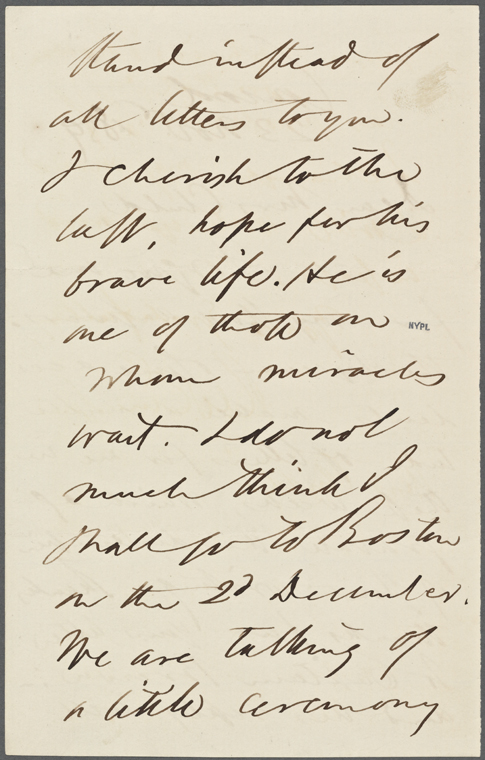 stand instead of
all letters to you.
I cherish to the
last, hope for his
brave life. He is
one of those on
NYPL
whom miracles
wait. I do not
much think I
shall go to Boston
on the 2d December.
We are talking of
a little ceremony